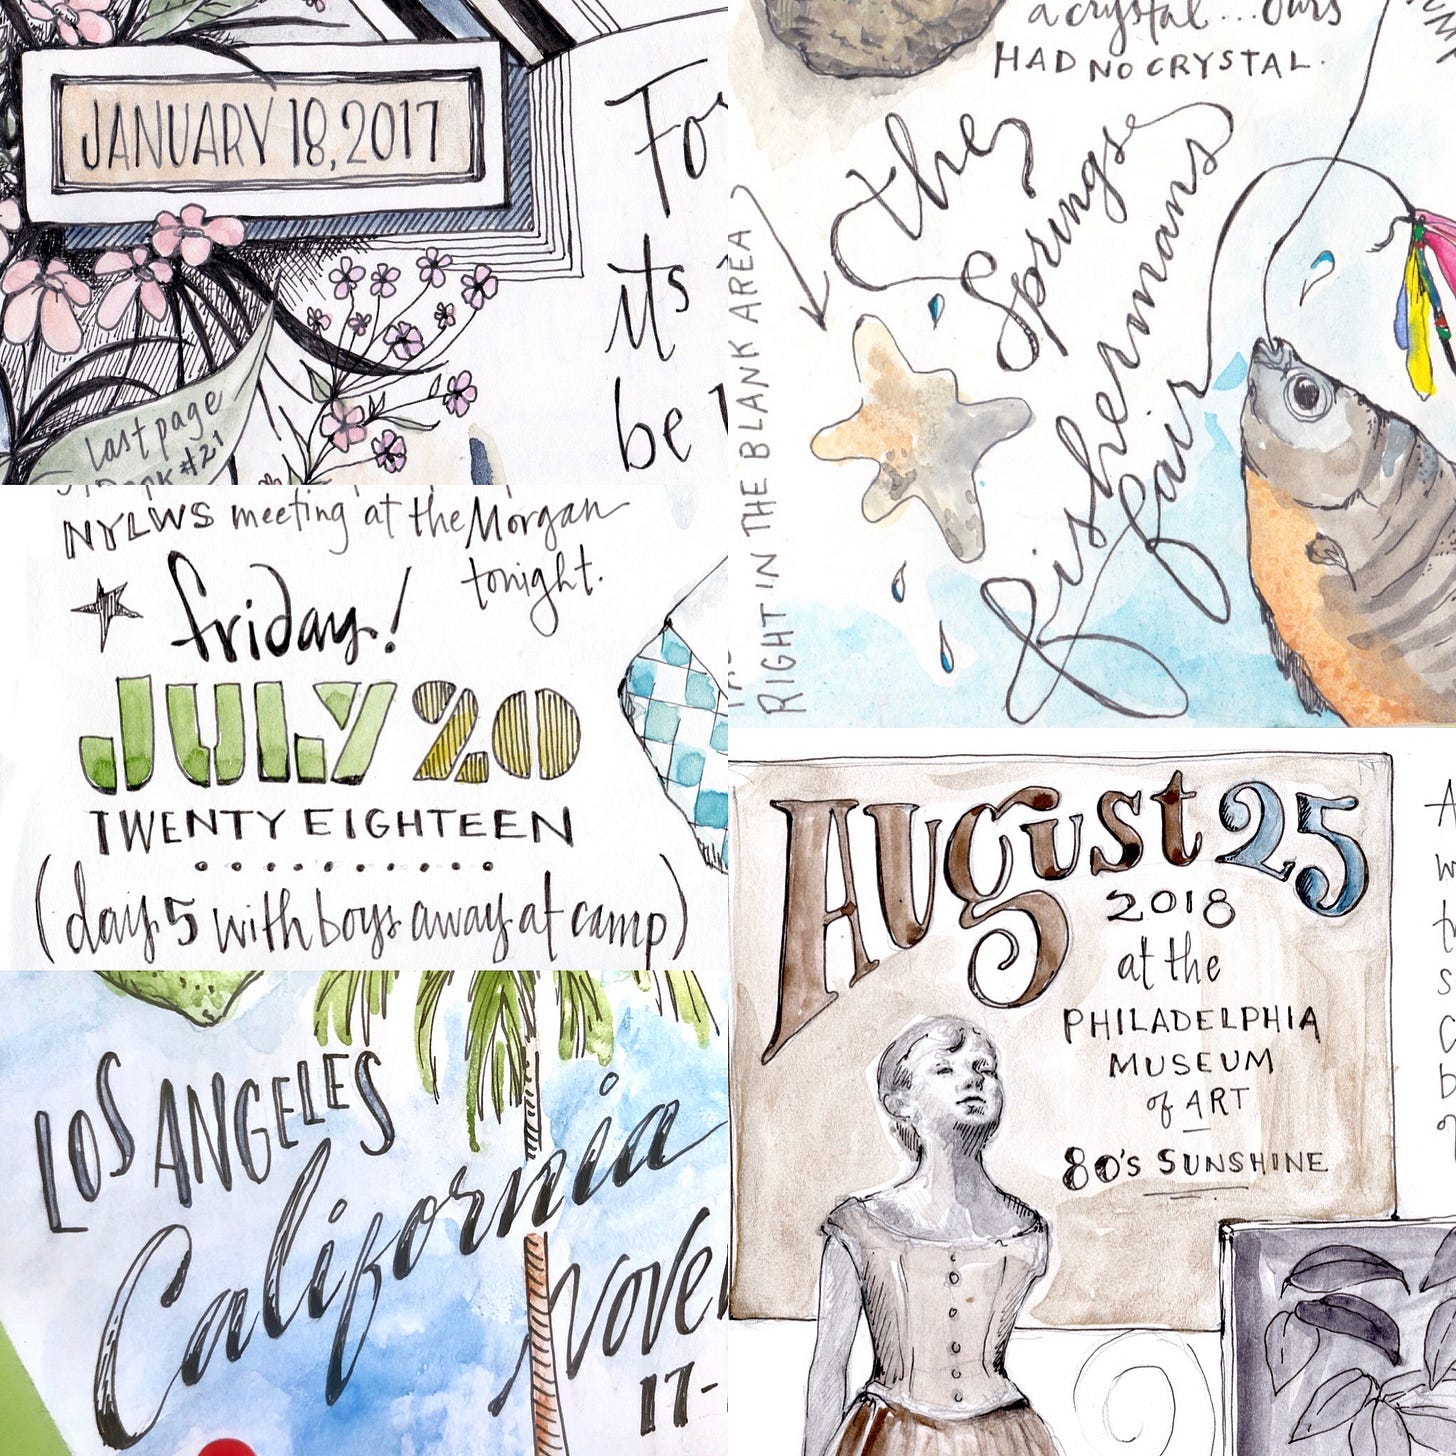 JANUARY 18, 2017
last page
#21
it's
be
NYLWS meeting at the Morgan
tonight.
friday!
JULY 20
TWENTY EIGHTEEN
(day 5 with boys away at camp)
LOS ANGELES
California
17-
a crystal... ours
HAD NO CRYSTAL.
the
Springs
fishermans
fair
RIGHT IN THE BLANK AREA)
August 25
2018
at the
PHILADELPHIA
MUSEUM
of ART
80'S SUNSHINE